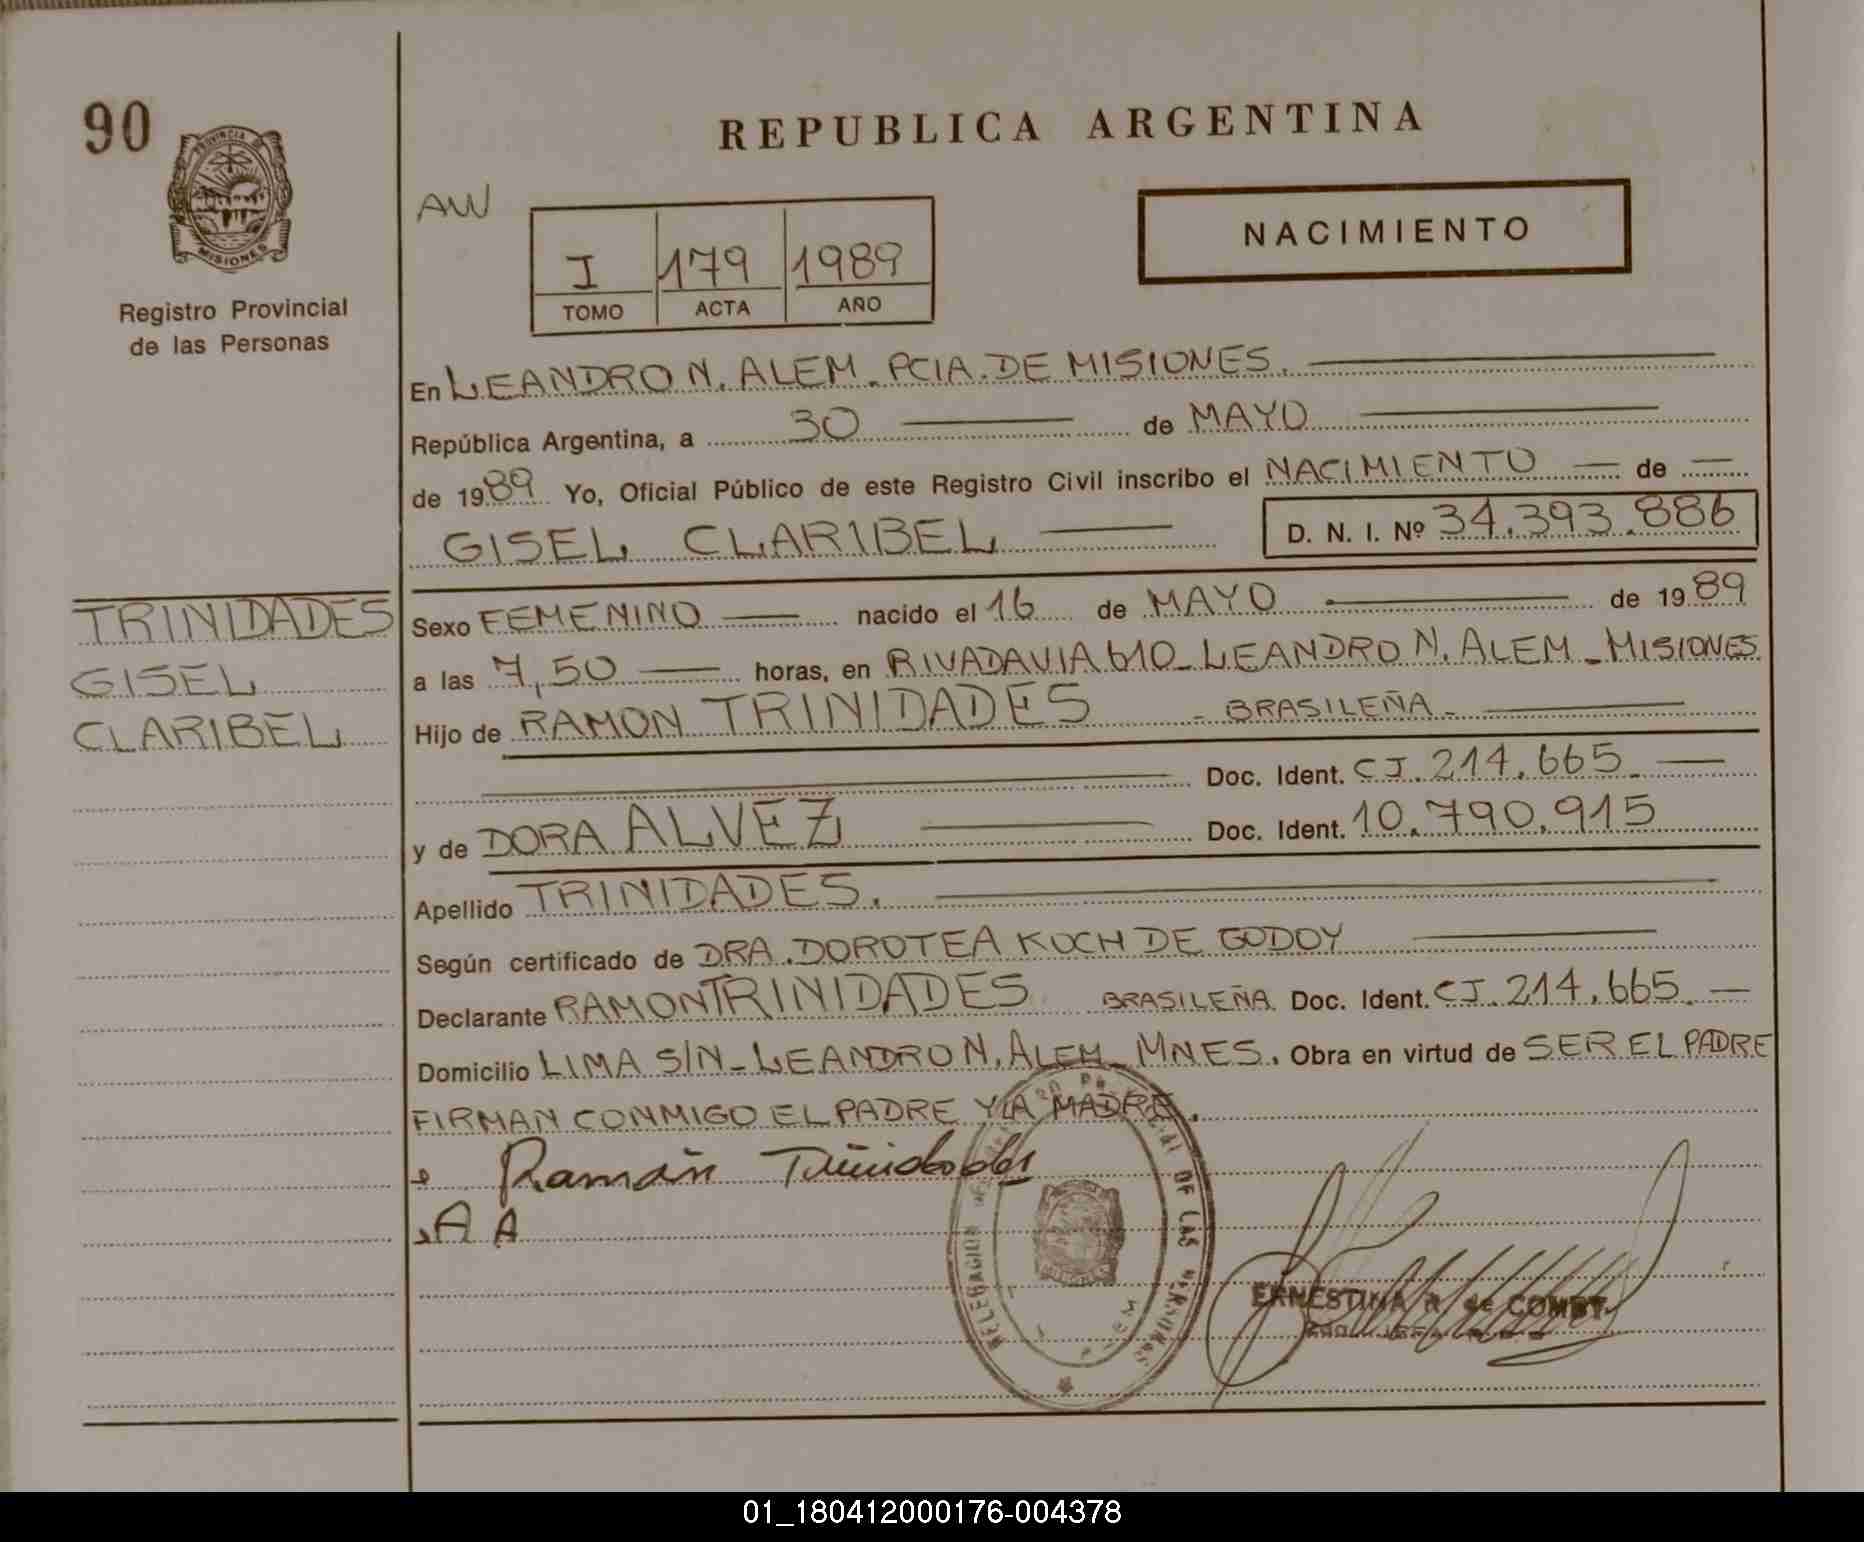 90
PROVINCIA DE
MISIONES
Registro Provincial
de las Personas
TRINIDADES
GISEL
CLARIBEL
REPUBLICA ARGENTINA
AW
I 179 1989
TOMO ACTA AÑO
NACIMIENTO
En LEANDRO N. ALEM. PCIA. DE MISIONES.
República Argentina, a 30 de MAYO
de 1989 Yo, Oficial Público de este Registro Civil inscribo el NACIMIENTO de
GISEL CLARIBEL D. N. I. Nº 34.393.886
Sexo FEMENINO nacido el 16 de MAYO de 1989
a las 7,50 horas, en RIVADAVIA 610_LEANDRO N. ALEM_MISIONES
Hijo de RAMON TRINIDADES - BRASILEÑA -
Doc. Ident. CI. 214.665.
y de DORA ALVEZ Doc. Ident. 10.790.915
Apellido TRINIDADES.
Según certificado de DRA. DOROTEA KOCH DE GODOY
Declarante RAMON TRINIDADES BRASILEÑA Doc. Ident. CI. 214.665.
Domicilio LIMA S/N_LEANDRO N. ALEM_MNES. Obra en virtud de SER EL PADRE
FIRMAN CONMIGO EL PADRE Y LA MADRE.
Ramón Trinidades
A A
DELEGACION DE LAS PERSONAS
ERNESTINA R. de COMBY
01_180412000176-004378